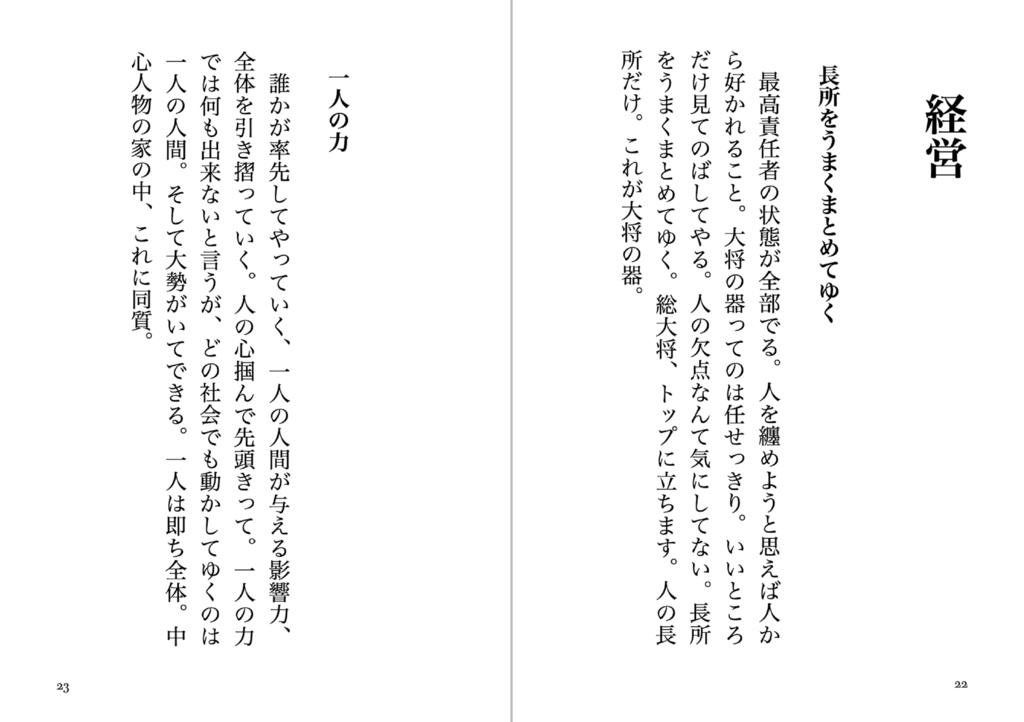 経営
長所をうまくまとめてゆく
最高責任者の状態が全部でる。人を纏めようと思えば人か
ら好かれること。大将の器ってのは任せっきり。いいところ
だけ見てのばしてやる。人の欠点なんて気にしてない。長所
をうまくまとめてゆく。総大将、トップに立ちます。人の長
所だけ。これが大将の器。
22
一人の力
誰かが率先してやっていく、一人の人間が与える影響力、
全体を引き摺っていく。人の心掴んで先頭きって。一人の力
では何も出来ないと言うが、どの社会でも動かしてゆくのは
一人の人間。そして大勢がいてできる。一人は即ち全体。中
心人物の家の中、これに同質。
23